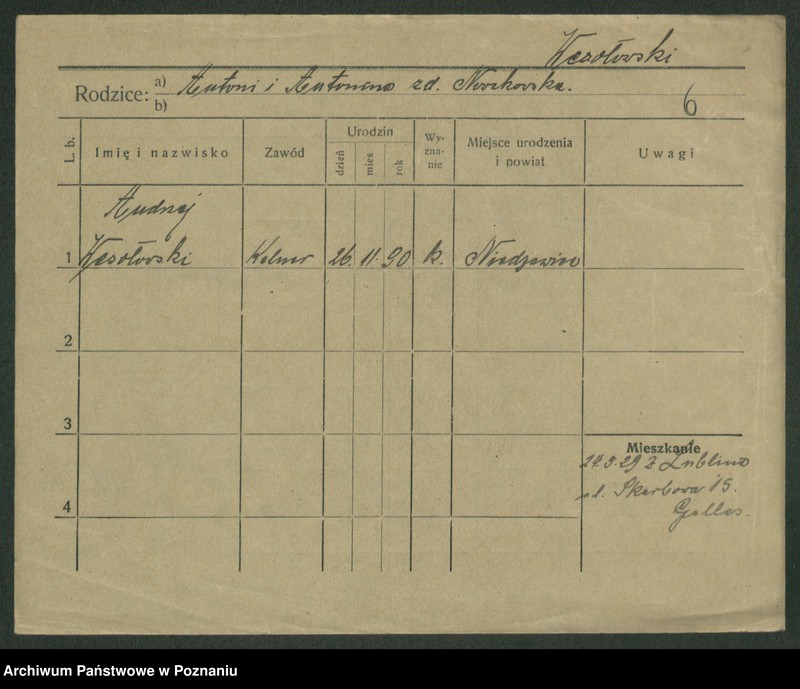 Wesołowski
Rodzice: a) Antoni i Antonina zd. Noskowska.
b)
6
L. b.
Imię i nazwisko
Zawód
Urodzin
dzień
mies
rok
Wy-
zna-
nie
Miejsce urodzenia
i powiat
Uwagi
Andrzej
1 Wesołowski Kelner 26. 11. 90 k.
2
3
4
Mieszkanie
24.5.29 z Lublina
ul. Skarbowa 15.
Archiwum Państwowe w Poznaniu